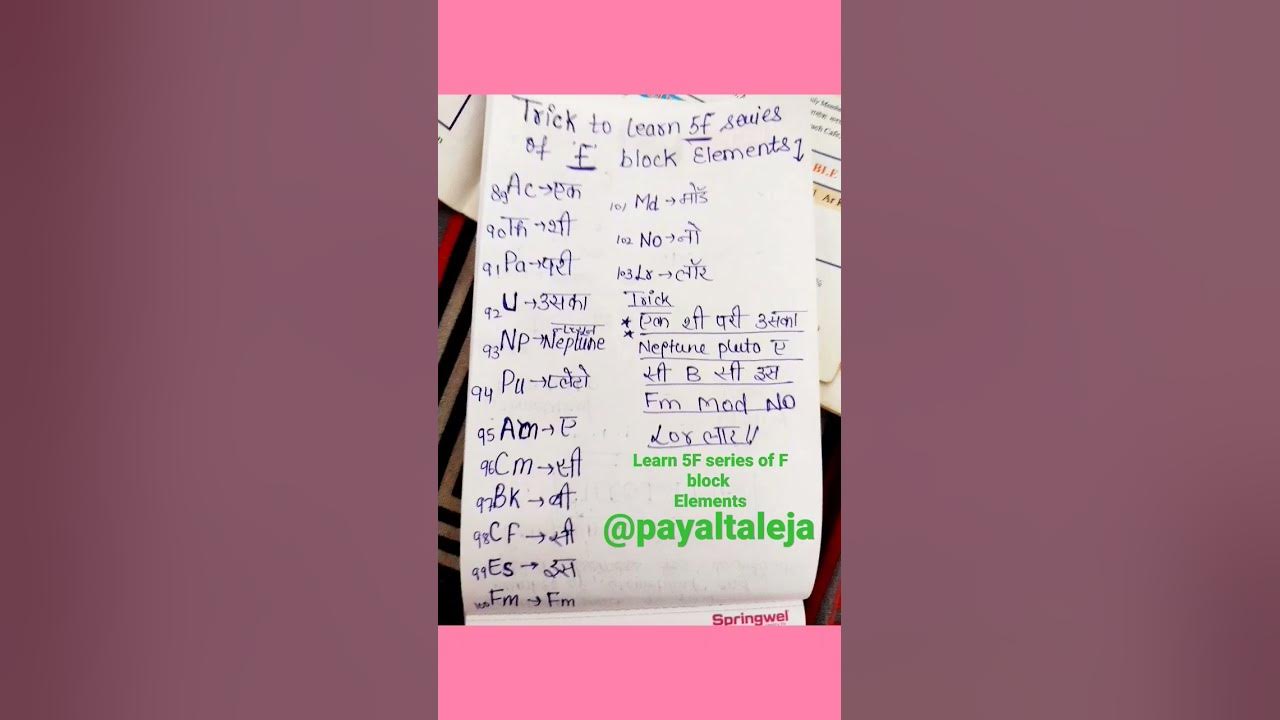 Trick to learn 5f series
of 'F' block Elements
89Ac→एक
90Th→थी
91Pa→परी
92U→उसका
93Np→Neptune
94Pu→प्लेटो
95Am→ए
96Cm→सी
97Bk→बी
98CF→सी
99Es→इस
100Fm→Fm
101Md→मॉड
102No→नो
103Lr→लॉर
Trick
* एक थी परी उसका
* Neptune pluto ए
सी B सी इस
Fm Mod NO
Lor लार॥
Learn 5F series of F
block
Elements
@payaltaleja
Springwel
BLE